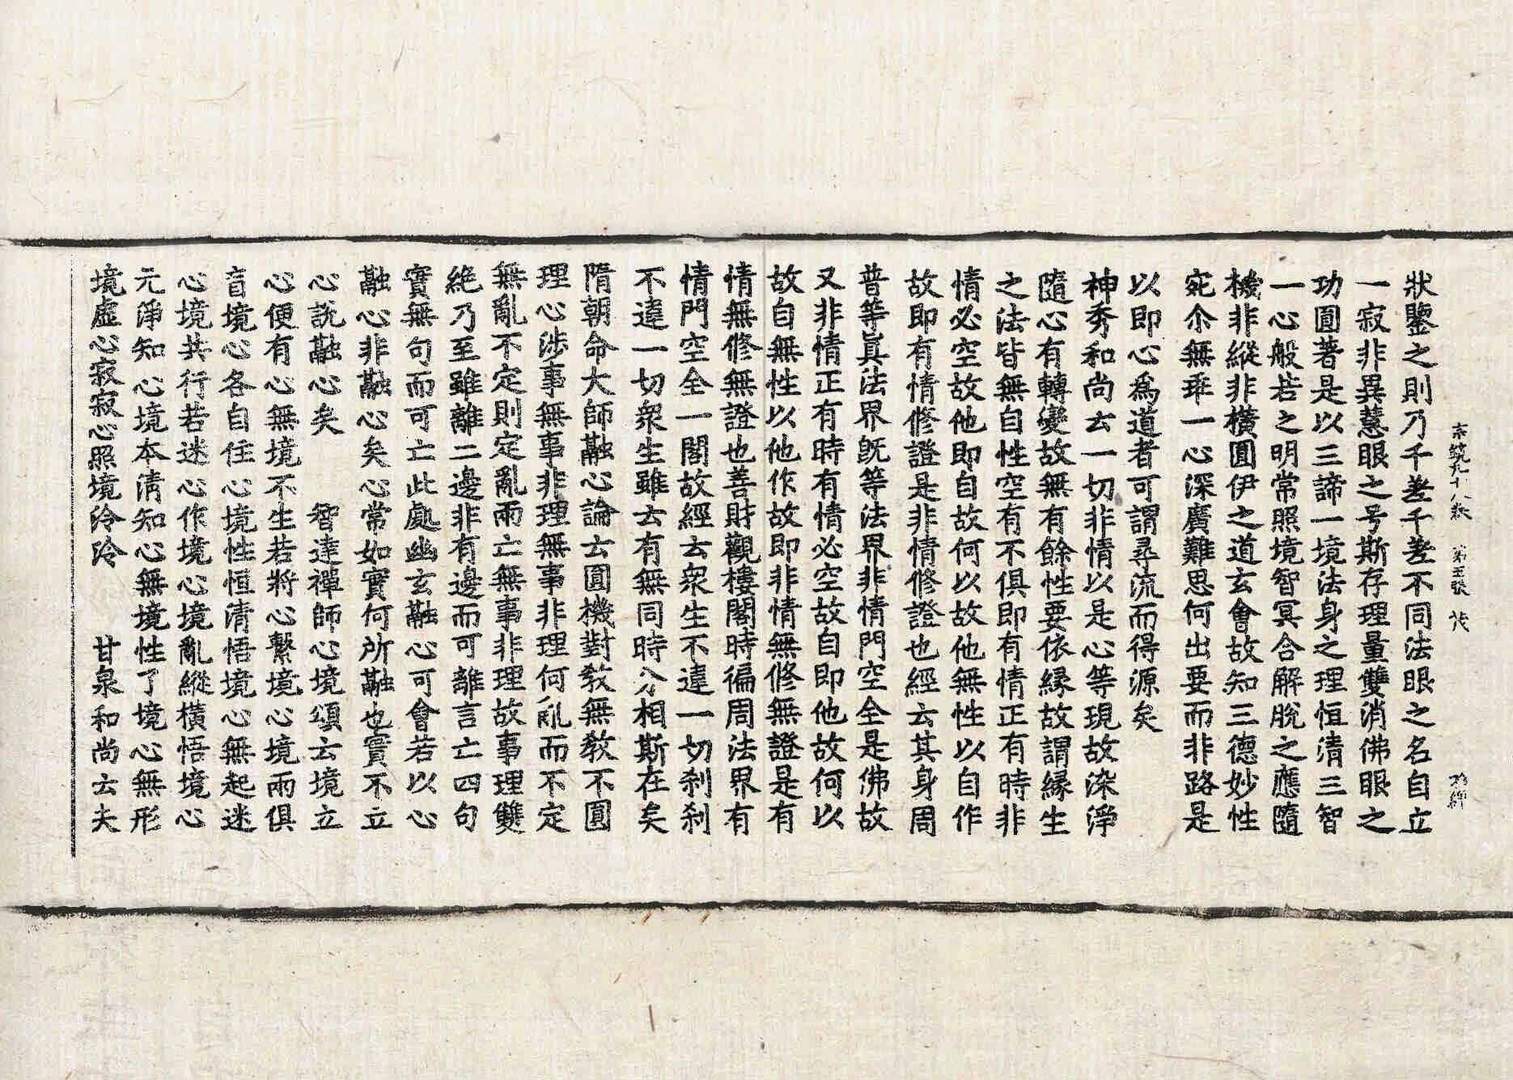 宗鏡九十八卷 第五張
狀鑒之則乃千差千差不同法眼之名自立
一寂非異慧眼之号斯存理量雙消佛眼之
功圓著是以三諦一境法身之理恒清三智
一心般若之明常照境智冥合解脫之應隨
機非縱非橫圓伊之道玄會故知三德妙性
宛尒無乖一心深廣難思何出要而非路是
以即心爲道者可謂尋流而得源矣
神秀和尚云一切非情以是心等現故染淨
隨心有轉變故無有餘性要依緣故謂緣生
之法皆無自性空有不俱即有情正有時非
情必空故他即自故何以故他無性以自作
故即有情修證是非情修證也經云其身周
普等眞法界旣等法界非情門空全是佛故
又非情正有時有情必空故自即他故何以
故自無性以他作故即非情無修無證是有
情無修無證也善財觀樓閣時徧周法界有
情門空全一閣故經云衆生不違一切刹刹
不違一切衆生雖云有無同時分相斯在矣
隋朝命大師融心論云圓機對敎無敎不圓
理心涉事無事非理無事非理何亂而不定
無亂不定則定亂兩亡無事非理故事理雙
絶乃至雖離二邊非有邊而可離言亡四句
實無句而可亡此處幽玄融心可會若以心
融心非融心矣心常如實何所融也實不立
心說融心矣　　智達禪師心境頌云境立
心便有心無境不生若將心繫境心境兩俱
盲境心各自住心境性恒清悟境心無起迷
心境共行若迷心作境心境亂縱橫悟境心
元淨知心境本清知心無境性了境心無形
境虛心寂寂心照境泠泠　　甘泉和尚云夫